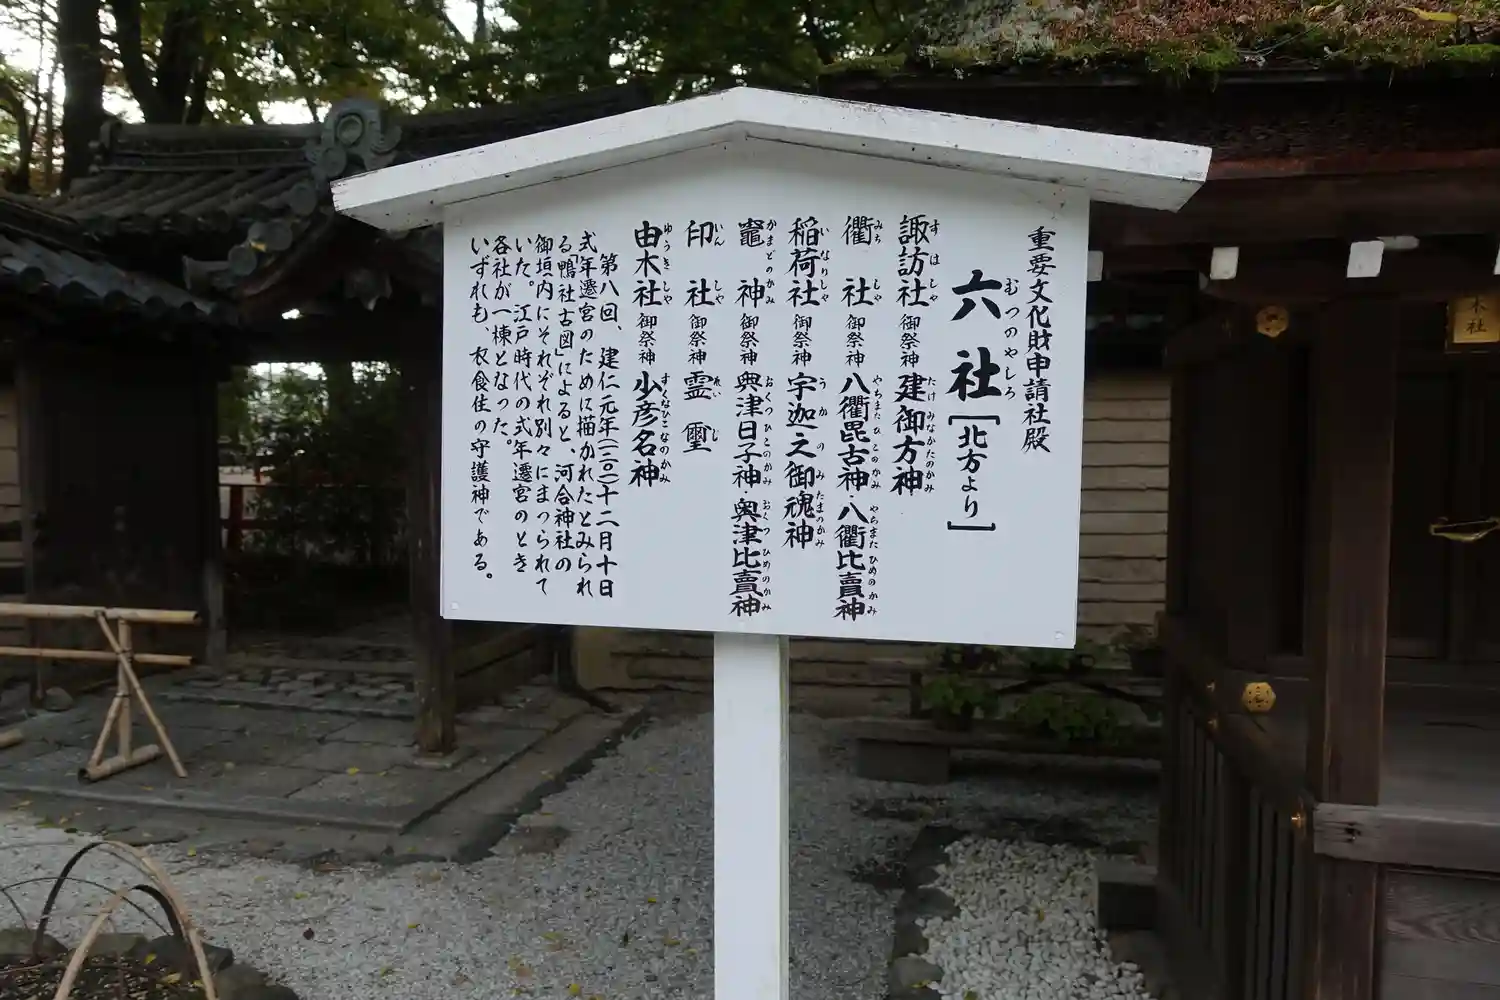 重要文化財申請社殿
六社［北方より］
むつのやしろ
諏訪社 御祭神 建御方神
すはしゃ たけみなかたのかみ
衢社 御祭神 八衢毘古神・八衢比賣神
みちしゃ やちまたひこのかみ やちまたひめのかみ
稲荷社 御祭神 宇迦之御魂神
いなりしゃ うかのみたまのかみ
竈神 御祭神 奥津日子神・奥津比賣神
かまどのかみ おくつひこのかみ おくつひめのかみ
印社 御祭神 霊璽
いんしゃ れいじ
由木社 御祭神 少彦名神
ゆうきしゃ すくなひこなのかみ
第八回、建仁元年(一二〇一)十二月十日
式年遷宮のために描かれたとみられ
る「鴨社古図」によると、河合神社の
御垣内にそれぞれ別々にまつられて
いた。江戸時代の式年遷宮のとき
各社が一棟となった。
いずれも、衣食住の守護神である。
木社